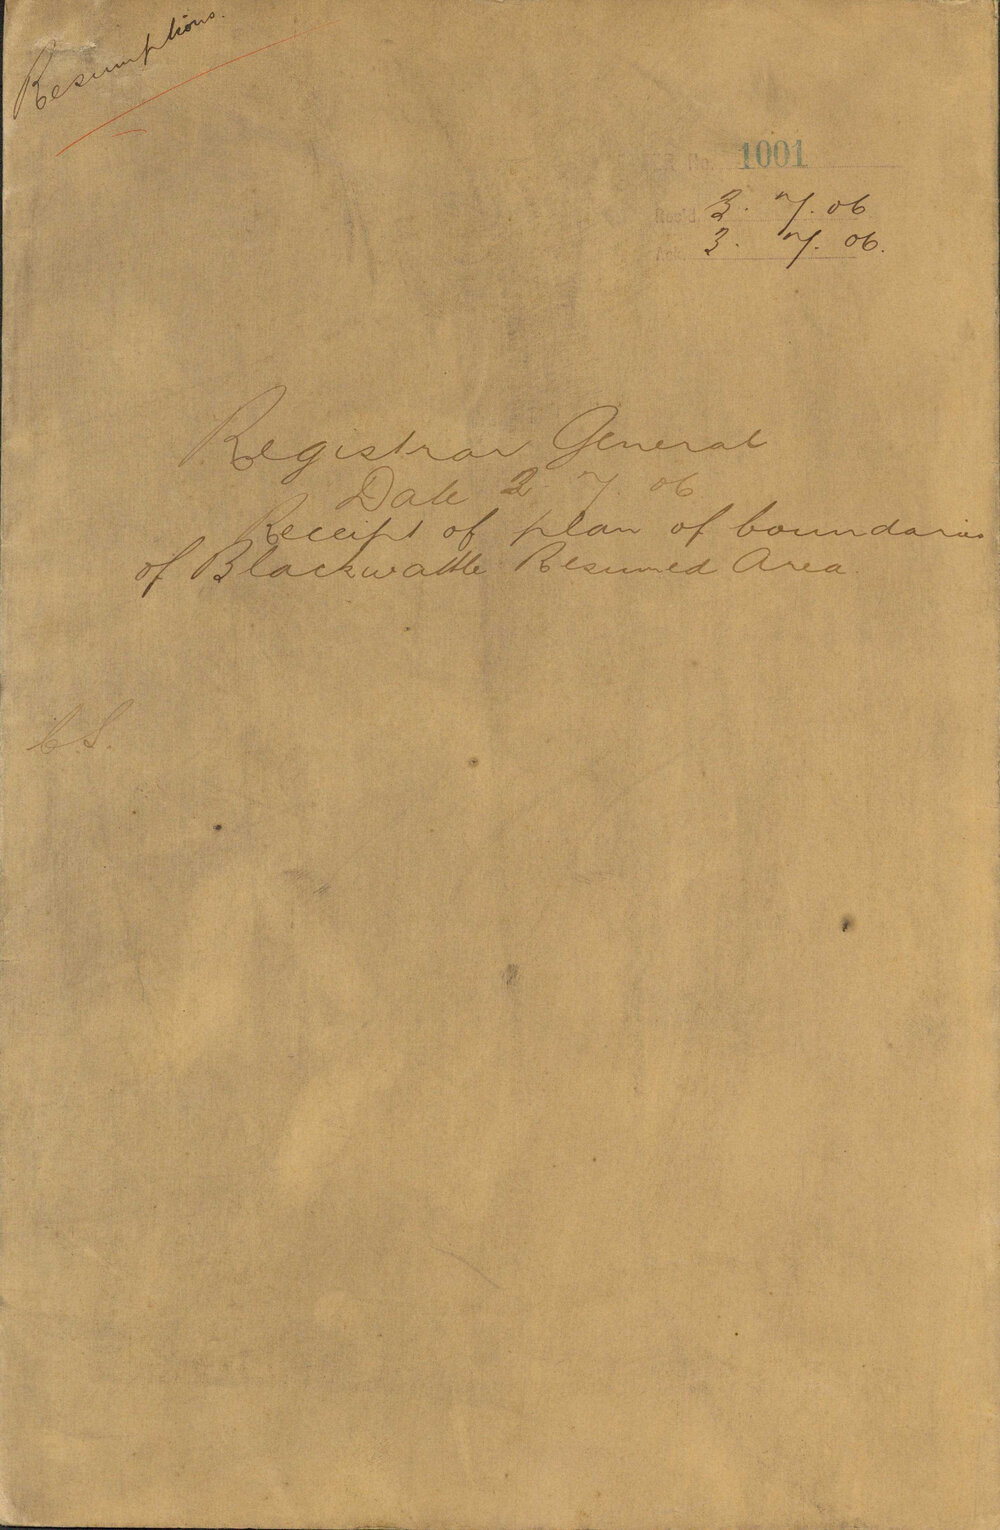 Resumptions.
R No. 1001
Rec'd. 3. 7. 06
Ack. 3. 7. 06.
Registrar General
Date 2. 7. 06
Receipt of plan of boundaries
of Blackwattle Resumed Area.
C.S.